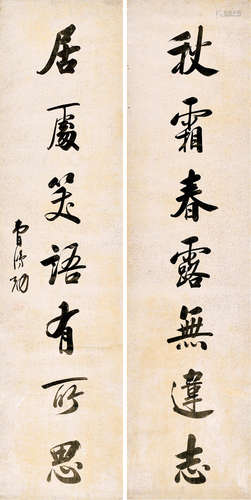 秋霜春露無違志
居處笑語有所思
曾濟剛